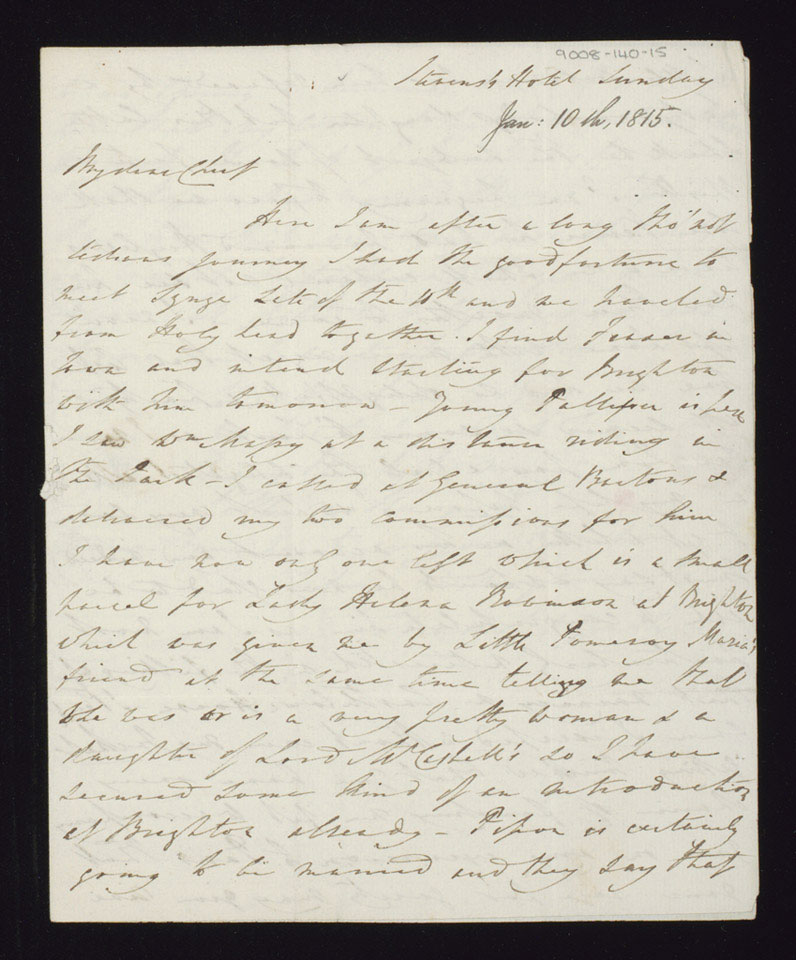 9008-140-15
Stevens's Hotel Sunday
Jan: 10th, 1815.
My dear Chief
Here I am after a long tho' not
tedious journey I had the good fortune to
meet Synge late of the 10th and we traveled
from Holy head together. I find Fraser in
Town and intend starting for Brighton
with him tomorrow - Young Palliser is here
I saw Wm at a distance riding in
the Park - I called at General Bartons &
delivered my two commissions for him
I have now only one left which is a small
parcel for Lady Helena Robinson at Brighton
which was given me by Little Pomeroy Maria's
friend at the same time telling me that
she was or is a very pretty woman & a
daughter of Lord so I have
secured some kind of an introduction
at Brighton already - Pipon is certainly
going to be married and they say that